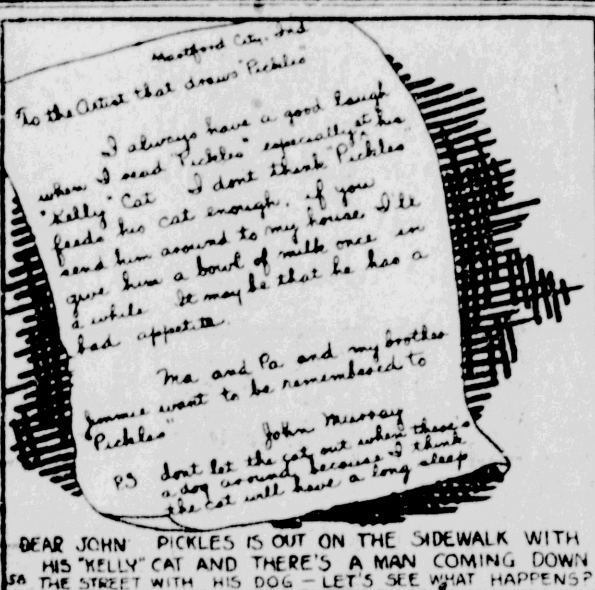 Hartford City, Ind
"To the Artist that draws "Pickles"
I always have a good laugh
when I read "Pickles" especially at his
"Kelly" Cat I dont think "Pickles"
feeds his cat enough. if you
send him around to my house I'll
give him a bowl of milk once in
a while It may be that he has a
bad appetite.
Ma and Pa and my brother
Jimmie want to be remembered to
Pickles"
John Murray
P.S dont let the cat out when there's
a dog around because I think
the cat will have a long sleep
DEAR JOHN PICKLES IS OUT ON THE SIDEWALK WITH
HIS "KELLY" CAT AND THERE'S A MAN COMING DOWN
THE STREET WITH HIS DOG – LET'S SEE WHAT HAPPENS?